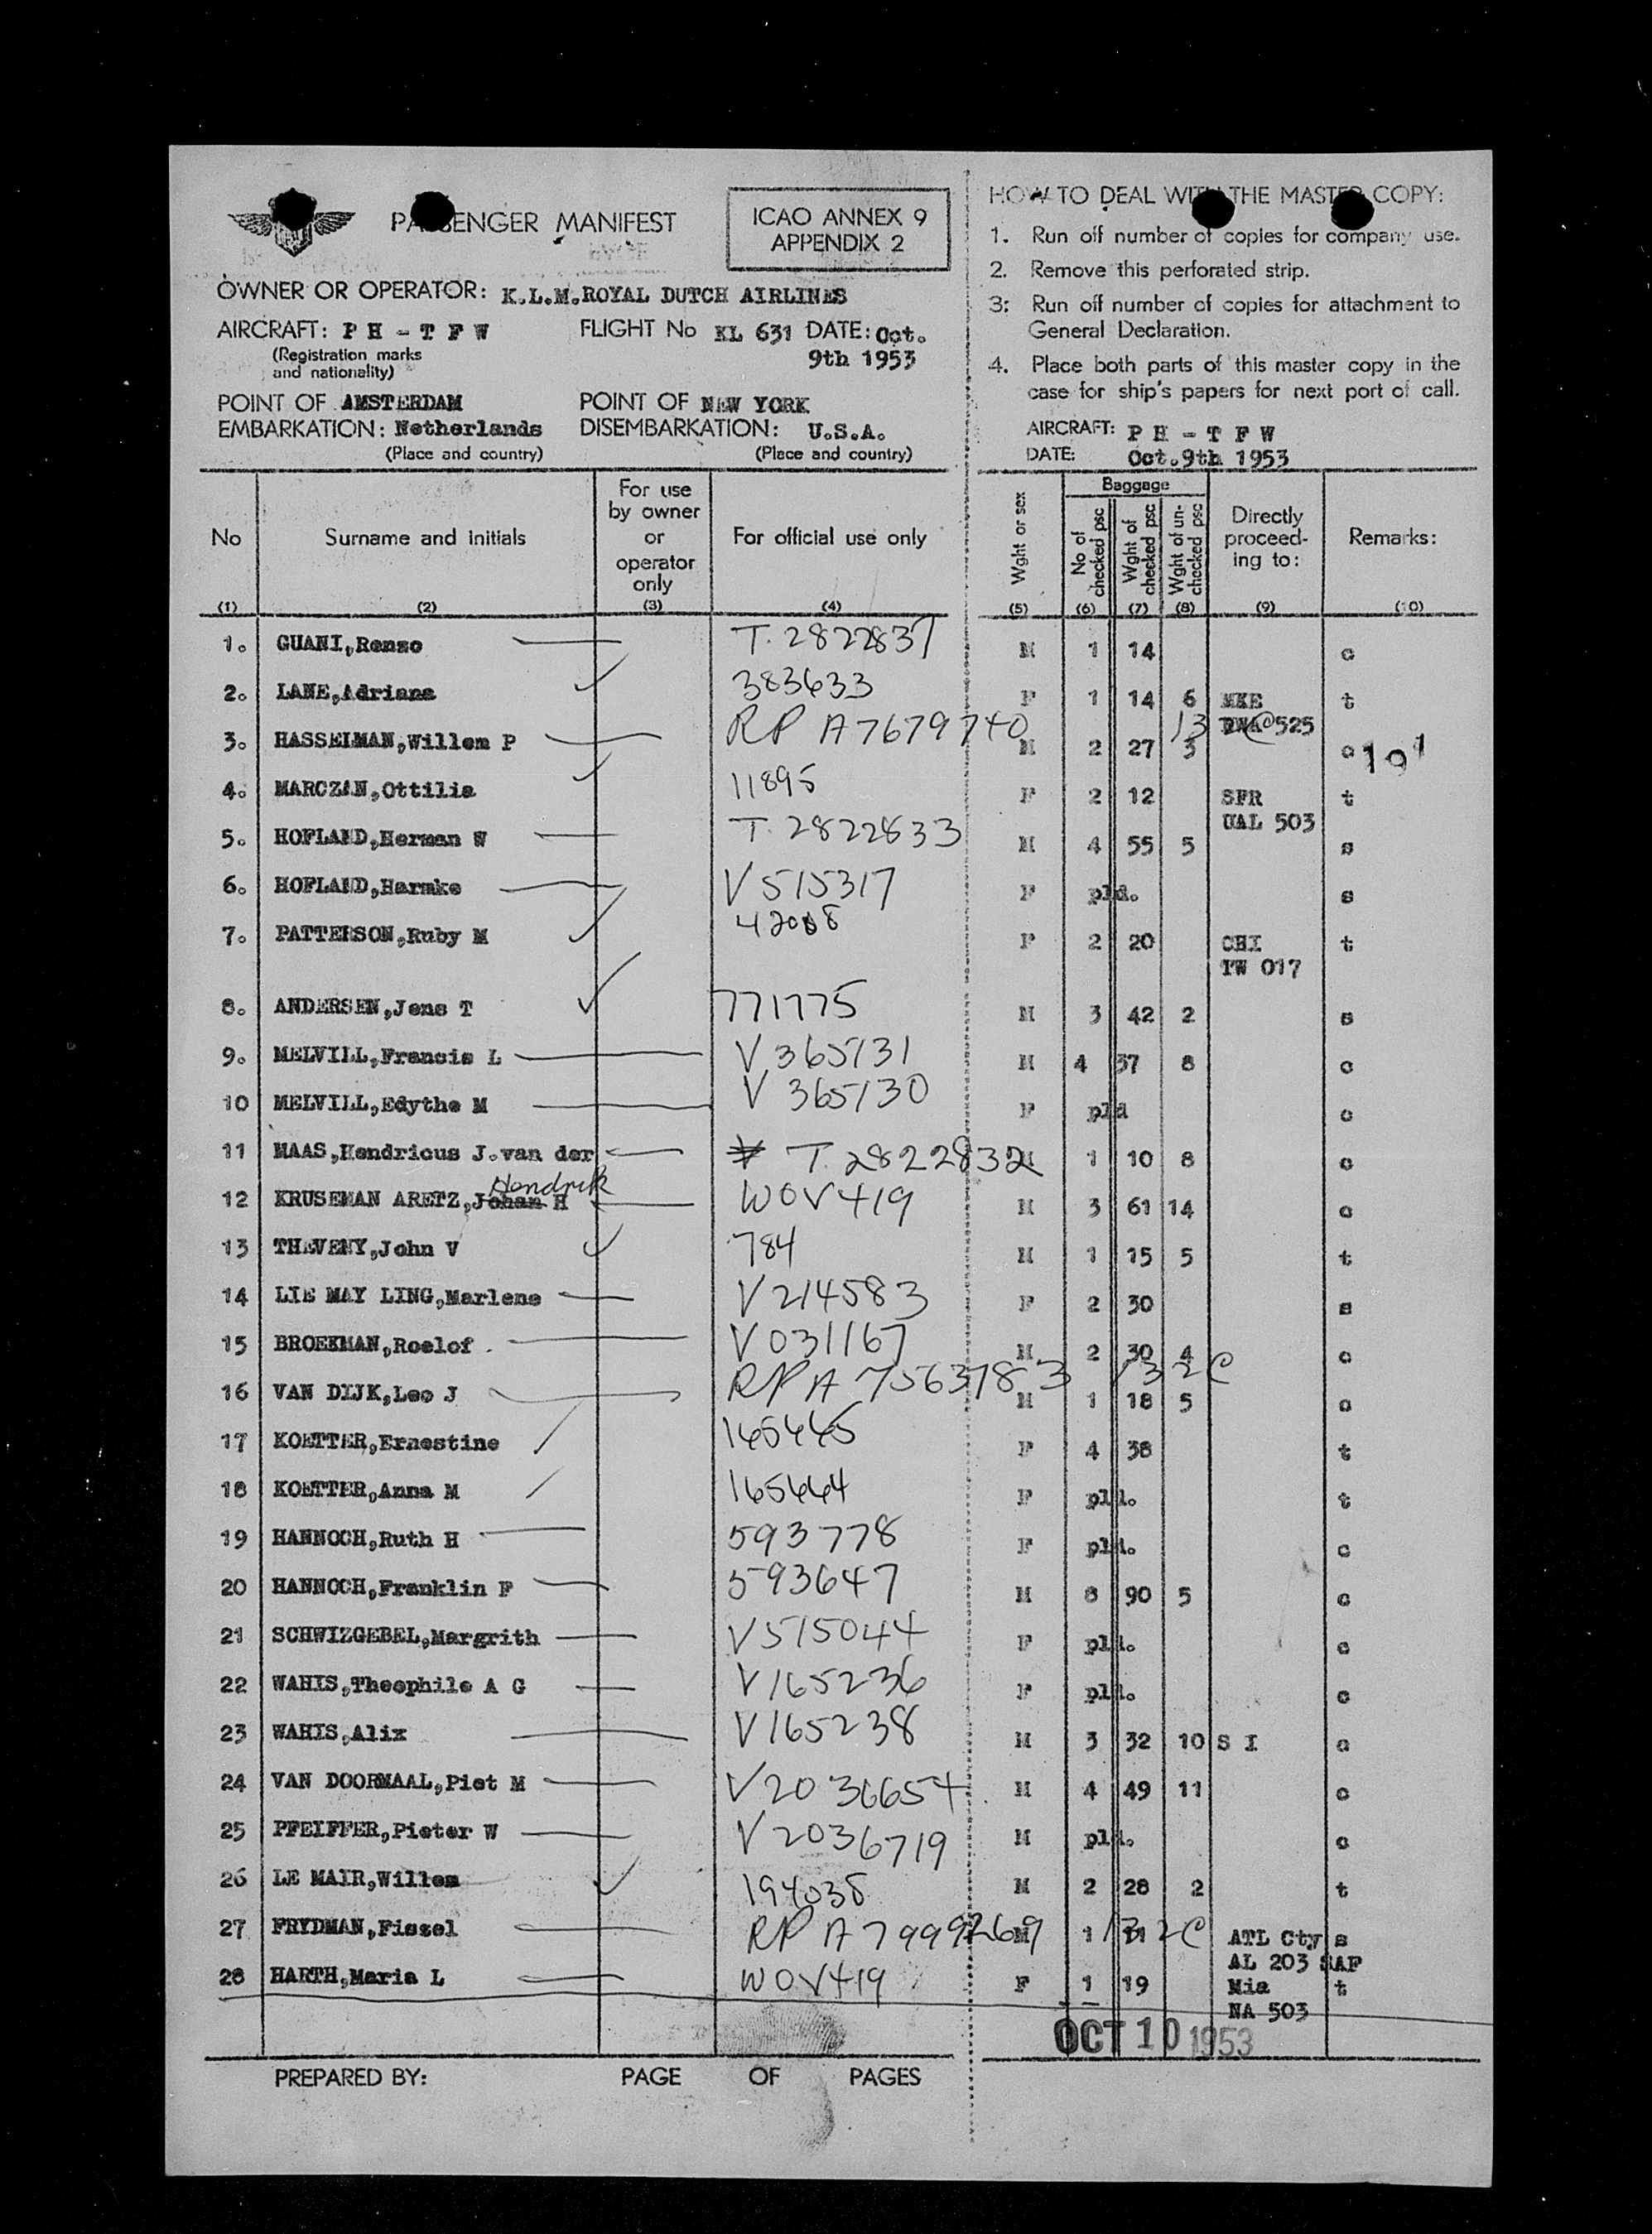 PASSENGER MANIFEST
ICAO ANNEX 9
APPENDIX 2
OWNER OR OPERATOR: K.L.M.ROYAL DUTCH AIRLINES
AIRCRAFT: P H - T F W FLIGHT No KL 631 DATE: Oct.
(Registration marks 9th 1953
and nationality)
POINT OF AMSTERDAM POINT OF NEW YORK
EMBARKATION: Netherlands DISEMBARKATION: U.S.A.
(Place and country) (Place and country)
HOW TO DEAL WITH THE MASTER COPY:
1. Run off number of copies for company use.
2. Remove this perforated strip.
3: Run off number of copies for attachment to
General Declaration.
4. Place both parts of this master copy in the
case for ship's papers for next port of call.
AIRCRAFT: P H - T F W
DATE: Oct.9th 1953
No Surname and initials For use by owner or operator only For official use only Wght or sex Baggage No of checked psc Wght of checked psc Wght of un-checked psc Directly proceed-ing to: Remarks:
(1) (2) (3) (4) (5) (6) (7) (8) (9) (10)
1. GUANI,Renzo T. 2822837 M 1 14 c
2. LANE,Adriana 383633 F 1 14 6 MKE t
525
3. HASSELMAN,Willem P RP A7679740 M 2 27 3 c 101
4. MARCZAN,Ottilia 11895 F 2 12 SFR t
UAL 503
5. HOFLAND,Herman W T. 2822833 M 4 55 5 s
6. HOFLAND,Harmke V 515317 F pld. s
7. PATTERSON,Ruby M F 2 20 CHI t
TW 017
8. ANDERSEN,Jens T 771775 M 3 42 2 s
9. MELVILL,Francis L V 365131 M 4 37 8 c
10 MELVILL,Edythe M V 365130 F pld c
11 MAAS,Hendricus J.van der T. 2822832 M 1 10 8 c
Hendrik
12 KRUSEMAN ARETZ,Johan H WOV419 M 3 61 14 c
13 THEVENY,John V 784 M 1 15 5 t
14 LIE MAY LING,Marlene V214583 F 2 30 s
15 BROEKMAN,Roelof V031167 M 2 30 4 c
132C
16 VAN DIJK,Leo J RP A 7563783 M 1 18 5 c
17 KOETTER,Ernestine 165445 F 4 38 t
18 KOETTER,Anna M 165444 F pld. t
19 HANNOCH,Ruth H 593778 F pld. c
20 HANNOCH,Franklin F 593647 M 8 90 5 c
21 SCHWIZGEBEL,Margrith V515044 F pld. c
22 WAHIS,Theophile A G V165236 F pld. c
23 WAHIS,Alix V165238 M 3 32 10 S I c
24 VAN DOORMAAL,Piet M V2036654 M 4 49 11 c
25 PFEIFFER,Pieter W V2036719 M pld. c
26 LE MAIR,Willem 194038 M 2 28 2 t
27 FRYDMAN,Fiszel RP A7999269 M 1 132C ATL Cty s
AL 203 SAP
28 HARTH,Maria L WOV419 F 1 19 Mia t
NA 503
OCT 10 1953
PREPARED BY: PAGE OF PAGES